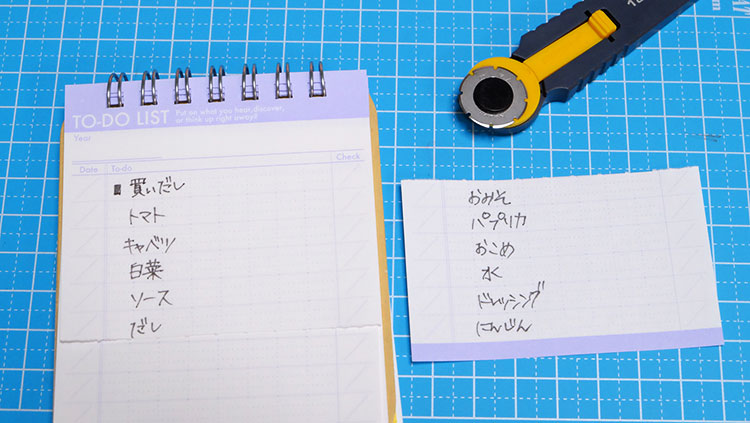 TO-DO LIST
Put on what you hear, discover,
or think up right away!!
Year
Date To-do Check
■ 買いだし
トマト
キャベツ
白菜
ソース
だし
おみそ
パプリカ
おこめ
水
ドレッシング
にんじん